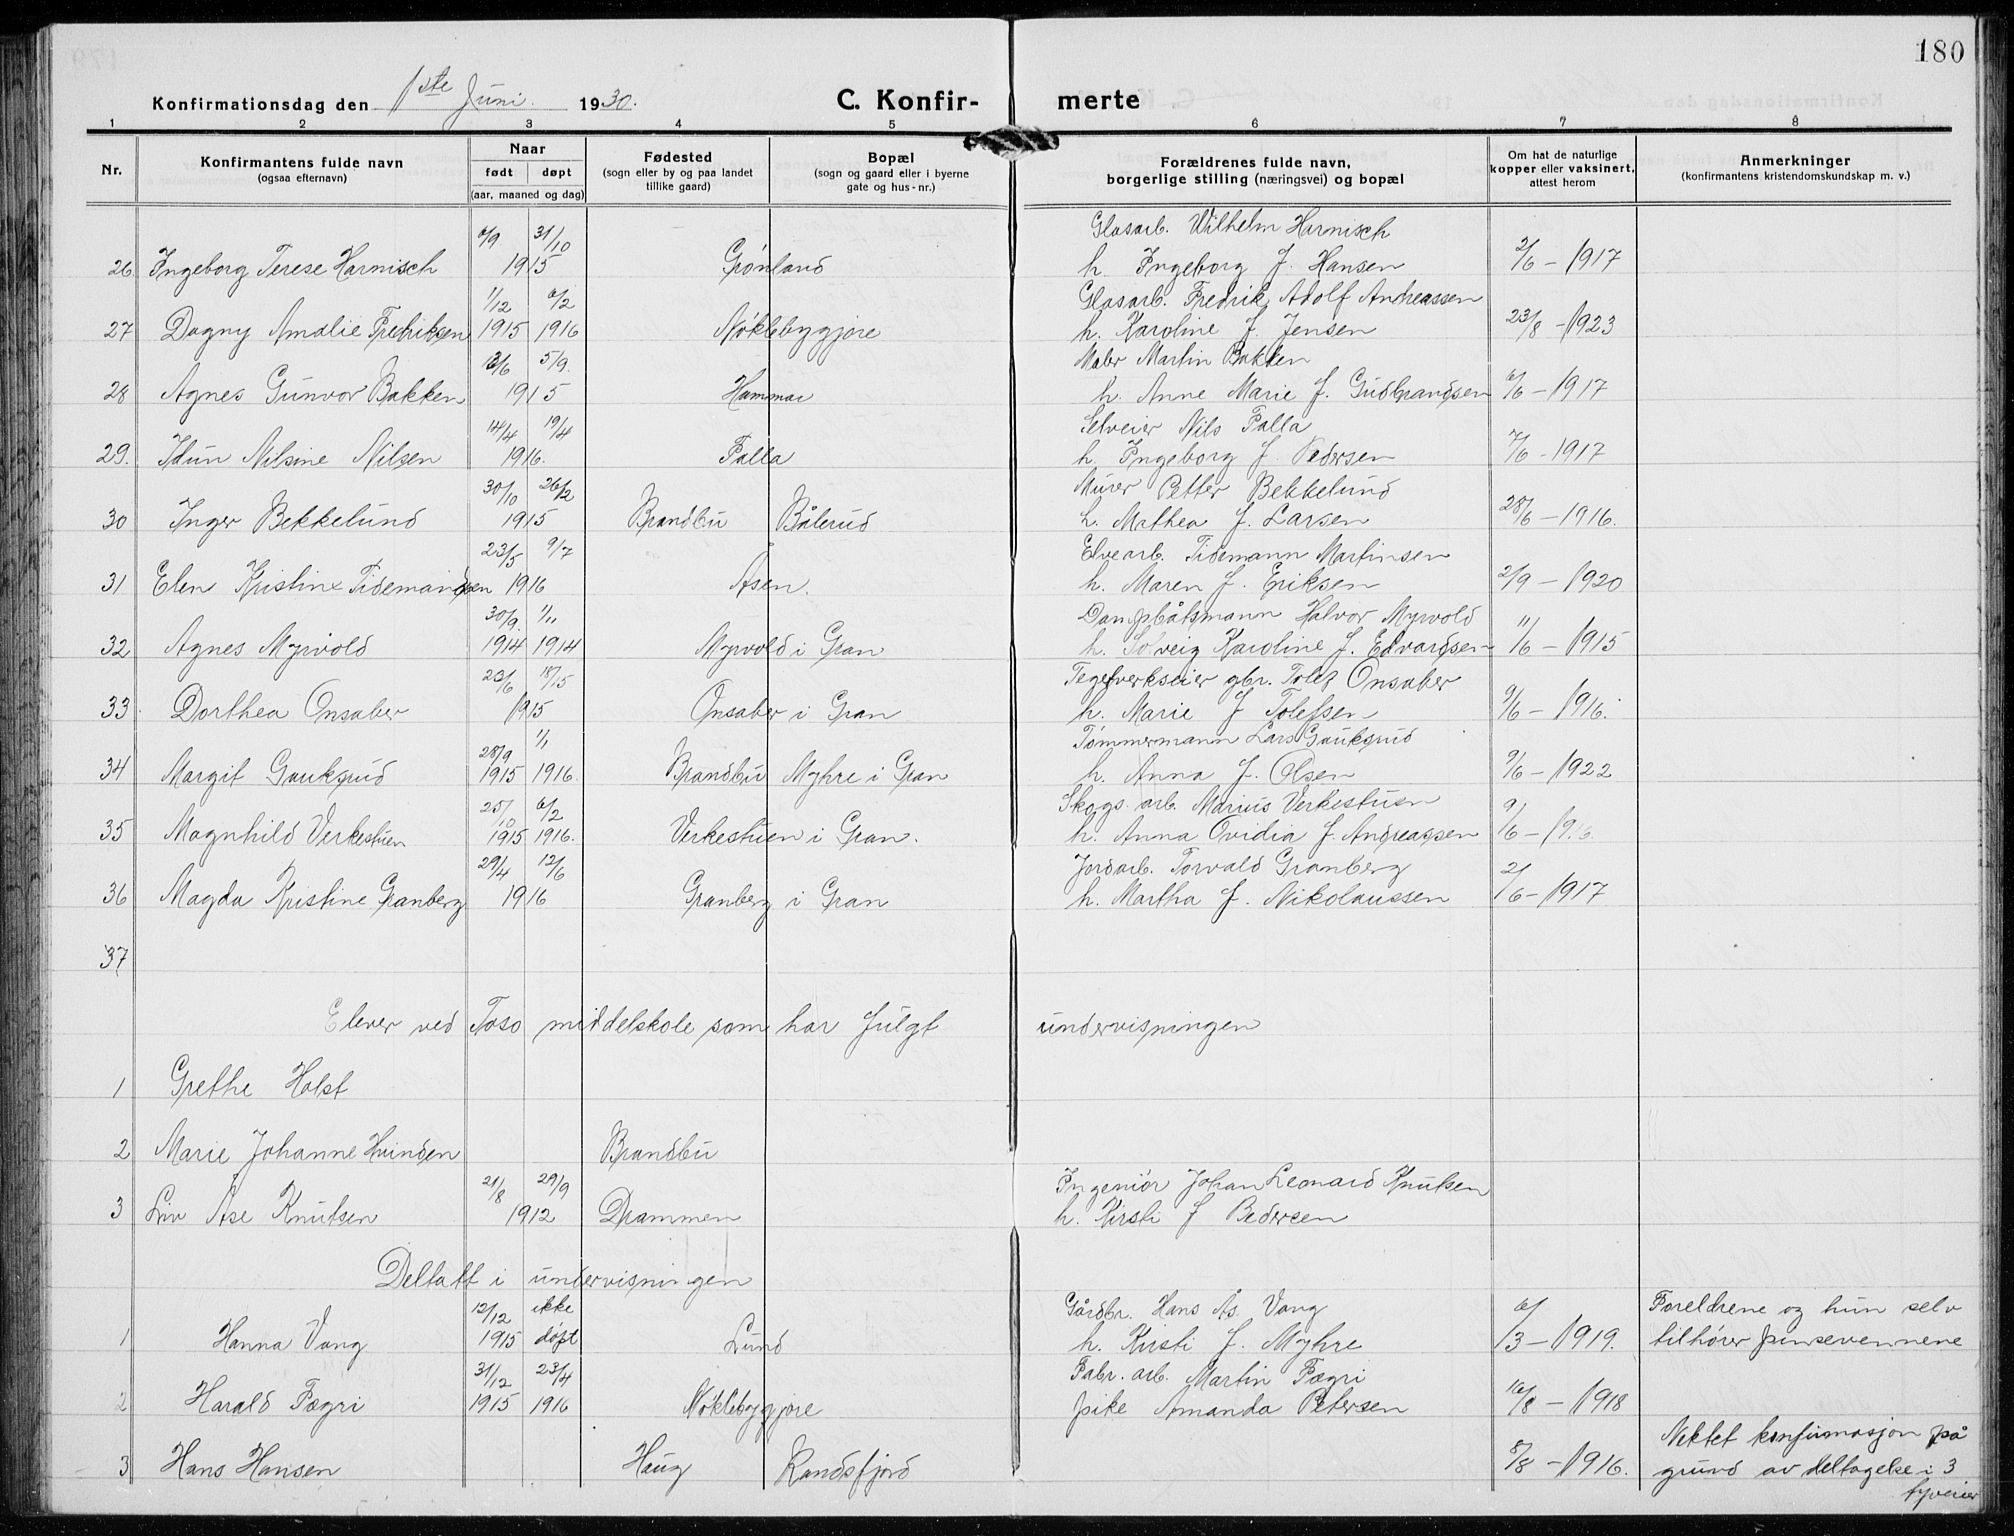 180
Konfirmationsdag den 1ste Juni 1930. C. Konfir- merte
1 2 3 4 5 6 7 8
Nr. Konfirmantens fulde navn (ogsaa efternavn) Naar født døpt (aar, maaned og dag) Fødested (sogn eller by og paa landet tillike gaard) Bopæl (sogn og gaard eller i byerne gate og hus-nr.) Forældrenes fulde navn, borgerlige stilling (næringsvei) og bopæl Om hat de naturlige kopper eller vaksinert, attest herom Anmerkninger (konfirmantens kristendomskundskap m. v.)
31/10 Glasarb. Wilhelm Harnisch
26 Ingeborg Terese Harnisch 1915 Grønland h. Ingeborg f. Hansen 2/6 - 1917
1/12 6/2 Glasarb. Fredrik Adolf Andreassen
27 Dagny Amalie Fredriksen 1915 1916 Nøklebygjore h. Karoline f. Jensen 23/8 - 1923
5/9. Maler Martin Bakken
28 Agnes Gunvor Bakken 1915 Hammar h. Anne Marie f. Gudbrandsen 6/6 - 1917
14/4 19/4 Selveier Nils Falla
29. Idun Nilsine Nilsen 1916. Falla h. Ingeborg f. Pedersen 7/6 - 1917
30/10 26/2 Murer Petter Bekkelund
30 Inger Bekkelund 1915 Brandbu Bålerud h. Mathea f. Larsen 28/6 - 1916.
23/5 9/7 Elvearb. Tidemann Martinsen
31 Elen Kristine Tidemandsen 1916 Åsen. h. Maren f. Eriksen 2/9 - 1920
30/9. 1/11 Dampbåtsmann Halvor Myrvold
32 Agnes Myrvold 1914 1914 Myrvold i Gran h. Solveig Karoline f. Edvardsen 11/6 - 1915
23/6 18/15 Tegelverkseier gbr. Tolef Onsaker
33. Dorthea Onsaker 1915 Onsaker i Gran h. Marie f Tolefsen 9/6 - 1916.
28/9 1/1 Tømmermann Lars Gauksrud
34 Margit Gauksrud 1915 1916. Brandbu Myhre i Gran h. Anna f. Olsen 9/6 - 1922
25/10 6/2 Skogs. arb. Marius Verkestuen
35 Magnhild Verkestuen 1915 1916. Verkestuen i Gran. h. Anna Ovidia f. Andreassen 9/6 - 1916.
29/4 12/6 Jordarb. Torvald Granberg
36 Magda Kristine Granberg 1916 Granberg i Gran h. Martha f. Nikolaussen 2/6 - 1917
37
Elever ved Toso middelskole som har fulgt undervisningen
1 Grethe Holst
2 Marie Johanne Hvinden Brandbu
21/8 29/9 Ingeniør Johan Leonard Knutsen
3 Liv Åse Knutsen 1912 Drammen h. Kirsti f Pedersen
Deltatt i undervisningen
12/12 ikke Gårdbr. Hans As. Vang 6/ Foreldrene og hun selv
1 Hanna Vang 1915 døpt Lund h. Kirsti f. Myhre 13 - 1919. tilhører pinsevennene
31/12 23/4 Fabr. arb. Martin Fægri
2 Harald Fægri 1915 1916 Nøklebygjore pike Amanda Petersen 16/8 - 1918
Nektet konfirmasjon på
3 Hans Hansen Haug Randsfjord 8/8 - 1916. grund av deltagelse i 3
tyverier